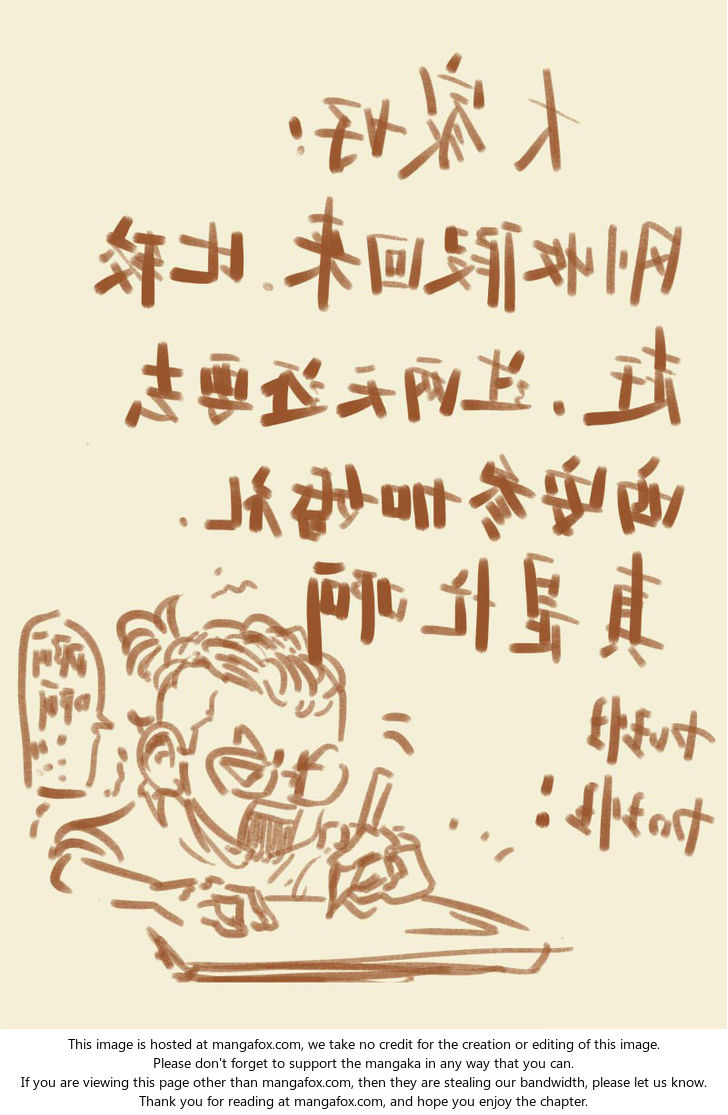 大家好:
刚放假回来.比较
赶.过两天还要去
西安参加婚礼.
真是忙啊
加班
加班!
This image is hosted at mangafox.com, we take no credit for the creation or editing of this image.
Please don't forget to support the mangaka in any way that you can.
If you are viewing this page other than mangafox.com, then they are stealing our bandwidth, please let us know.
Thank you for reading at mangafox.com, and hope you enjoy the chapter.